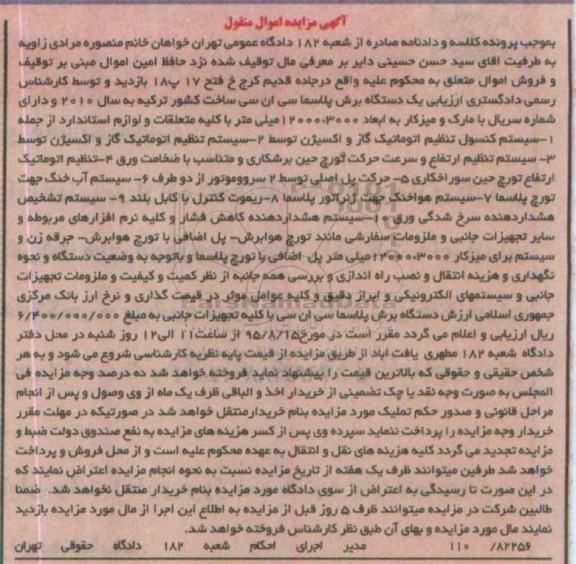 آگهی مزایده اموال منقول
بموجب پرونده کلاسه و دادنامه صادره از شعبه ۱۸۲ دادگاه عمومی تهران خواهان خانم منصوره مرادی زاویه
به طرفیت اقای سید حسن حسینی دایر بر معرفی مال توقیف شده نزد حافظ امین اموال مبنی بر توقیف
و فروش اموال متعلق به محکوم علیه واقع درجاده قدیم کرج خ فتح ۱۷ پ۱۸ بازدید و توسط کارشناس
رسمی دادگستری ارزیابی یک دستگاه برش پلاسما سی ان سی ساخت کشور ترکیه به سال ۲۰۱۰ و دارای
شماره سریال با مارک و میزکار به ابعاد ۱۲۰۰۰،۳۰۰۰میلی متر با کلیه متعلقات و لوازم استاندارد از جمله
۱-سیستم کنسول تنظیم اتوماتیک گاز و اکسیژن توسط ۲-سیستم تنظیم اتوماتیک گاز و اکسیژن توسط
۳- سیستم تنظیم ارتفاع و سرعت حرکت تورچ حین برشکاری و متناسب با ضخامت ورق ۴-تنظیم اتوماتیک
ارتفاع تورچ حین سوراخکاری ۵- حرکت پل اصلی توسط ۲ سرووموتور از دو طرف ۶- سیستم آب خنک جهت
تورچ پلاسما ۷-سیستم هواخنک جهت ژنراتور پلاسما ۸-ریموت کنترل با کابل بلند ۹- سیستم تشخیص
هشداردهنده سرخ شدگی ورق ۱۰-سیستم هشداردهنده کاهش فشار و کلیه نرم افزارهای مربوطه و
سایر تجهیزات جانبی و ملزومات سفارشی مانند تورچ هوابرش- پل اضافی با تورچ هوابرش- جرقه زن و
سیستم برای میزکار ۱۲۰۰۰،۳۰۰۰میلی متر پل- اضافی با تورچ پلاسما و باتوجه به وضعیت دستگاه و نحوه
نگهداری و هزینه انتقال و نصب راه اندازی و بررسی همه جانبه از نظر کمیت و کیفیت و ملزومات تجهیزات
جانبی و سیستمهای الکترونیکی و ابراز دقیق و کلیه عوامل موثر در قیمت گذاری و نرخ ارز بانک مرکزی
جمهوری اسلامی ارزش دستگاه برش پلاسما سی ان سی با کلیه تجهیزات جانبی به مبلغ ۶/۴۰۰/۰۰۰/۰۰۰
ریال ارزیابی و اعلام می گردد مقرر است در مورخ۹۵/۸/۱۵ از ساعت۱۱ الی۱۲ روز شنبه در محل دفتر
دادگاه شعبه ۱۸۲ مطهری یافت اباد از طریق مزایده از قیمت پایه نظریه کارشناسی شروع می شود و به هر
شخص حقیقی و حقوقی که بالاترین قیمت را پیشنهاد نماید فروخته خواهد شد ده درصد وجه مزایده فی
المجلس به صورت وجه نقد یا چک تضمینی از خریدار اخذ و الباقی ظرف یک ماه از وی وصول و پس از انجام
مراحل قانونی و صدور حکم تملیک مورد مزایده بنام خریدارمنتقل خواهد شد در صورتیکه در مهلت مقرر
خریدار وجه مزایده را پرداخت ننماید سپرده وی پس از کسر هزینه های مزایده به نفع صندوق دولت ضبط و
مزایده تجدید می گردد کلیه هزینه های نقل و انتقال به عهده محکوم علیه است و از محل فروش و پرداخت
خواهد شد طرفین میتوانند ظرف یک هفته از تاریخ مزایده نسبت به نحوه انجام مزایده اعتراض نمایند که
در این صورت تا رسیدگی به اعتراض از سوی دادگاه مورد مزایده بنام خریدار منتقل نخواهد شد. ضمنا
طالبین شرکت در مزایده میتوانند ظرف ۵ روز قبل از مزایده به اطلاع این اجرا از مال مورد مزایده بازدید
نمایند مال مورد مزایده و بهای آن طبق نظر کارشناس فروخته خواهد شد.
۸۲۲۵۶/ ۱۱۰ مدیر اجرای احکام شعبه ۱۸۲ دادگاه حقوقی تهران